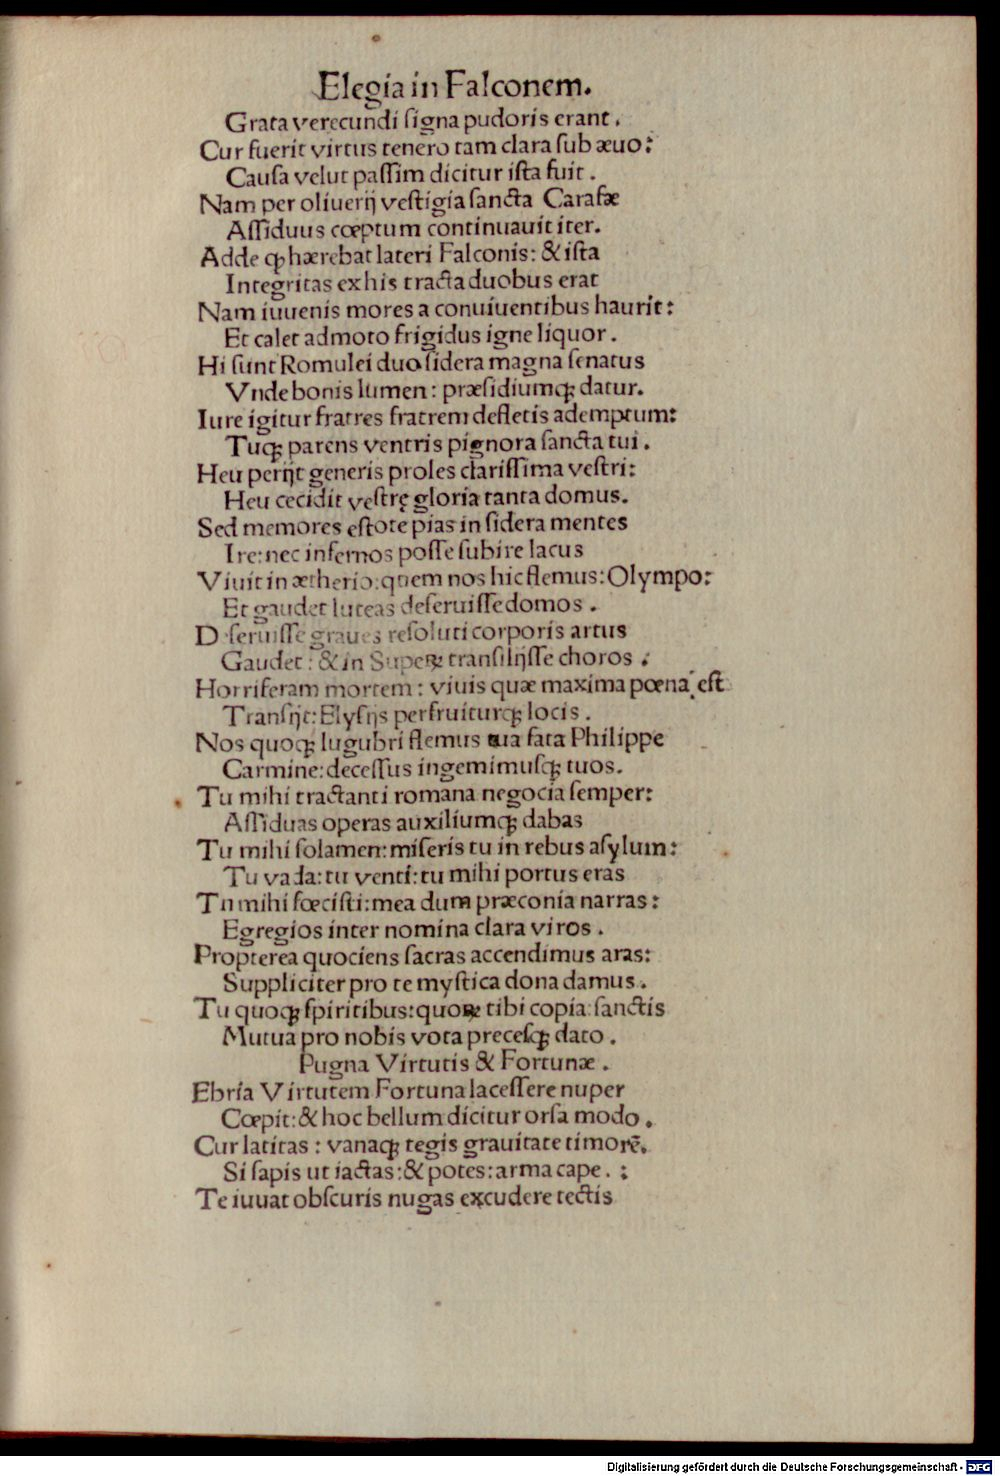 Elegia in Falconem.
Grata verecundi ſigna pudoris erant.
Cur fuerit virtus tenero tam clara ſub æuo:
Cauſa velut paſſim dicitur iſta fuit.
Nam per oliuerij veſtigia ſancta Carafæ
Aſſiduus cœptum continuauit iter.
Adde ꝙ hærebat lateri Falconis: & iſta
Integritas exhis tracta duobus erat
Nam iuuenis mores a conuiuentibus haurit:
Et calet admoto frigidus igne liquor.
Hi ſunt Romulei duo ſidera magna ſenatus
Vnde bonis lumen: præſidiumqꝫ datur.
Iure igitur fratres fratrem defletis ademptum:
Tuqꝫ parens ventris pignora ſancta tui.
Heu perijt generis proles clariſſima veſtri:
Heu cecidit veſtrę gloria tanta domus.
Sed memores eſtote pias in ſidera mentes
Ire: nec infernos poſſe ſubire lacus
Viuit in ætherio: quem nos hic flemus: Olympo:
Et gaudet luteas deſeruiſſe domos.
D ſeruiſſe graues reſoluti corporis artus
Gaudet: & in Superꝝ tranſilijſſe choros:
Horriferam mortem: viuis quæ maxima pœna eſt
Tranſijt: Elyſijs perfruiturqꝫ locis.
Nos quoqꝫ lugubri flemus tua fata Philippe
Carmine: deceſſus ingemimuſqꝫ tuos.
Tu mihi tractanti romana negocia ſemper:
Aſſiduas operas auxiliumqꝫ dabas
Tu mihi ſolamen: miſeris tu in rebus aſylum:
Tu vada: tu venti: tu mihi portus eras
Tu mihi fœciſti: mea dum præconia narras:
Egregios inter nomina clara viros.
Propterea quociens ſacras accendimus aras:
Suppliciter pro te myſtica dona damus.
Tu quoqꝫ ſpiritibus: quoꝝ tibi copia ſanctis
Mutua pro nobis vota preceſqꝫ dato.
Pugna Virtutis & Fortunæ.
Ebria Virtutem Fortuna laceſſere nuper
Cœpit: & hoc bellum dicitur orſa modo.
Cur latitas: vanaqꝫ tegis grauitate timorē.
Si ſapis ut iactas: & potes: arma cape. :
Te iuuat obſcuris nugas excudere tectis
Digitalisierung gefördert durch die Deutsche Forschungsgemeinschaft - DFG